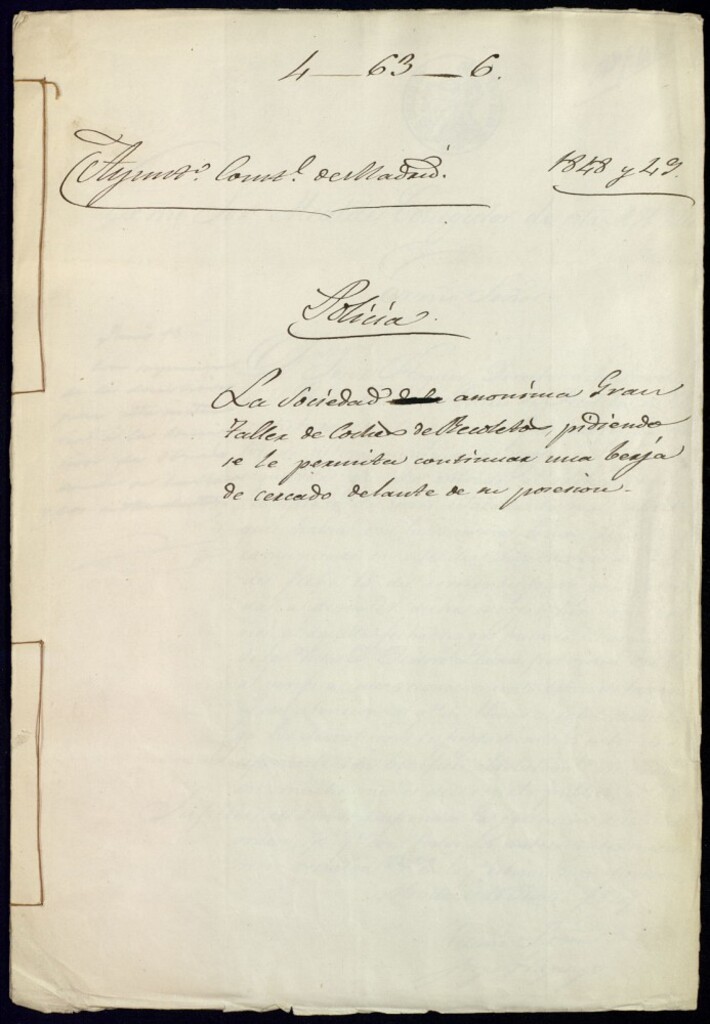 4 — 63 — 6.
Ayunt.º Const.l de Madrid. 1848 y 49.
Policia.
La Sociedad anonima Gran
Taller de Coches de Recoletos, pidiendo
se le permita continuar una berja
de cercado delante de su posesion.